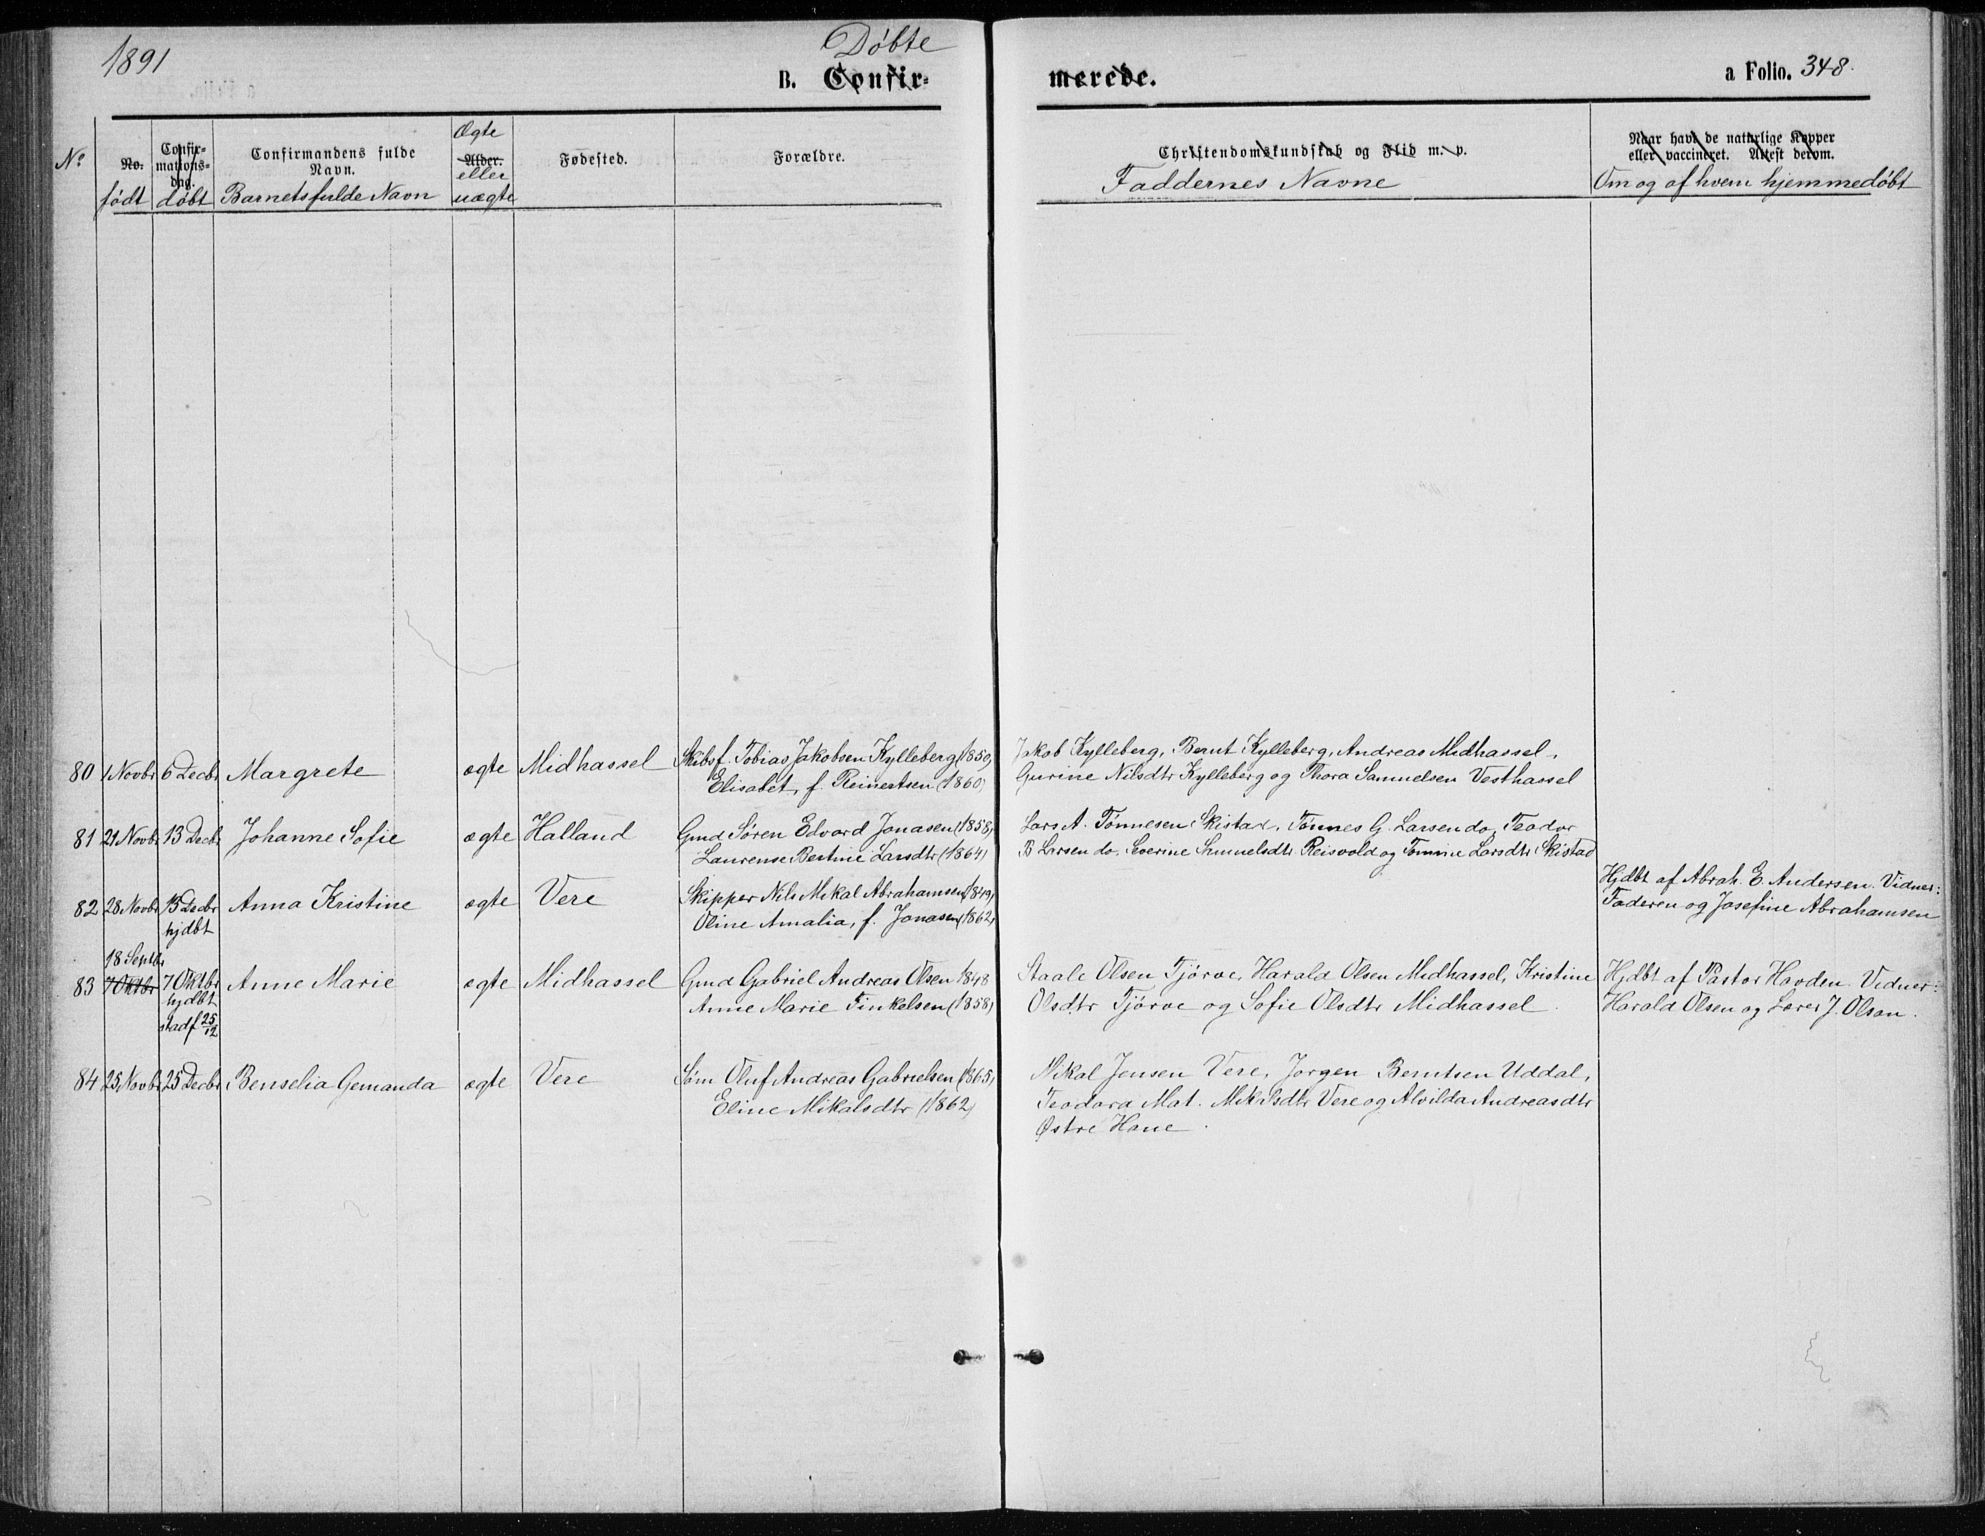 1891
Døbte
B. Confir-
merede.
a Folio. 348.
No
No.
født
Confir-
mations-
dag.
døbt
Confirmandens fulde
Navn.
Barnets fulde Navn
Ægte
Alder.
eller
uægte
Fødested.
Forældre.
Christendomskundskab og Flid m. v.
Faddernes Navne
Naar havt de naturlige Kopper
eller vaccineret. Attest derom.
Om og af hvem hjemmedøbt
80 1 Novbr 6 Decbr Margrete ægte Midhassel Skibsf. Tobias Jakobsen Kylleberg (1850) Jakob Kylleberg, Bernt Kylleberg, Andreas Midhassel,
Elisabet, f. Reinertsen (1860) Gurine Nilsdtr Kylleberg og Thora Samuelsen Vesthassel
81 21 Novbr 13 Decbr Johanne Sofie ægte Halland Gmd Søren Edvard Jonasen (1858) Lars A. Tønnesen Skistad, Tønnes G. Larsen do, Teodor
Laurense Bertine Larsdtr (1864) B Larsen do, Severine Samuelsdtr Reisvold og Tomine Larsdtr Skistad
82 28 Novbr 15 Decbr Anna Kristine ægte Vere Skipper Nils Mikal Abrahamsen (1849) Hjdbt af Abrah. E. Andersen. Vidner:
hjdbt Oline Amalia, f. Jonasen (1862) Faderen og Josefine Abrahamsen
18 Septbr
83 7 Oktbr 7 Oktbr Anne Marie ægte Midhassel Gmd Gabriel Andreas Olsen 1848 Staale Olsen Tjørve, Harald Olsen Midhassel, Kristine Hjdbt af Pastor Havden. Vidner:
hjdbt Anne Marie Tinkelsen (1858) Olsdtr Tjørve og Sofie Olsdtr Midhassel. Harald Olsen og Lærer J. Olsen.
stadf 25/12
84 25 Novbr 25 Decbr Benselia Gemanda ægte Vere Søm Oluf Andreas Gabrielsen (1865) Mikal Jensen Vere, Jørgen Berntsen Uddal,
Eline Mikalsdtr (1862) Teodora Mat. Mikalsdtr Vere og Alvilda Andreasdtr
Østre Hane.